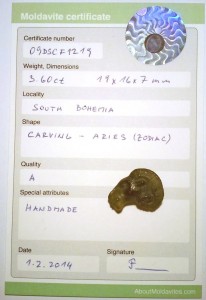 Moldavite certificate
Certificate number
09DSCF1219
Weight, Dimensions
3.60ct 19x16x7mm
Locality
SOUTH BOHEMIA
Shape
CARVING - ARIES (ZODIAC)
Quality
A
Special attributes
HANDMADE
Date
Signature
1.2.2014
AboutMoldavites.com